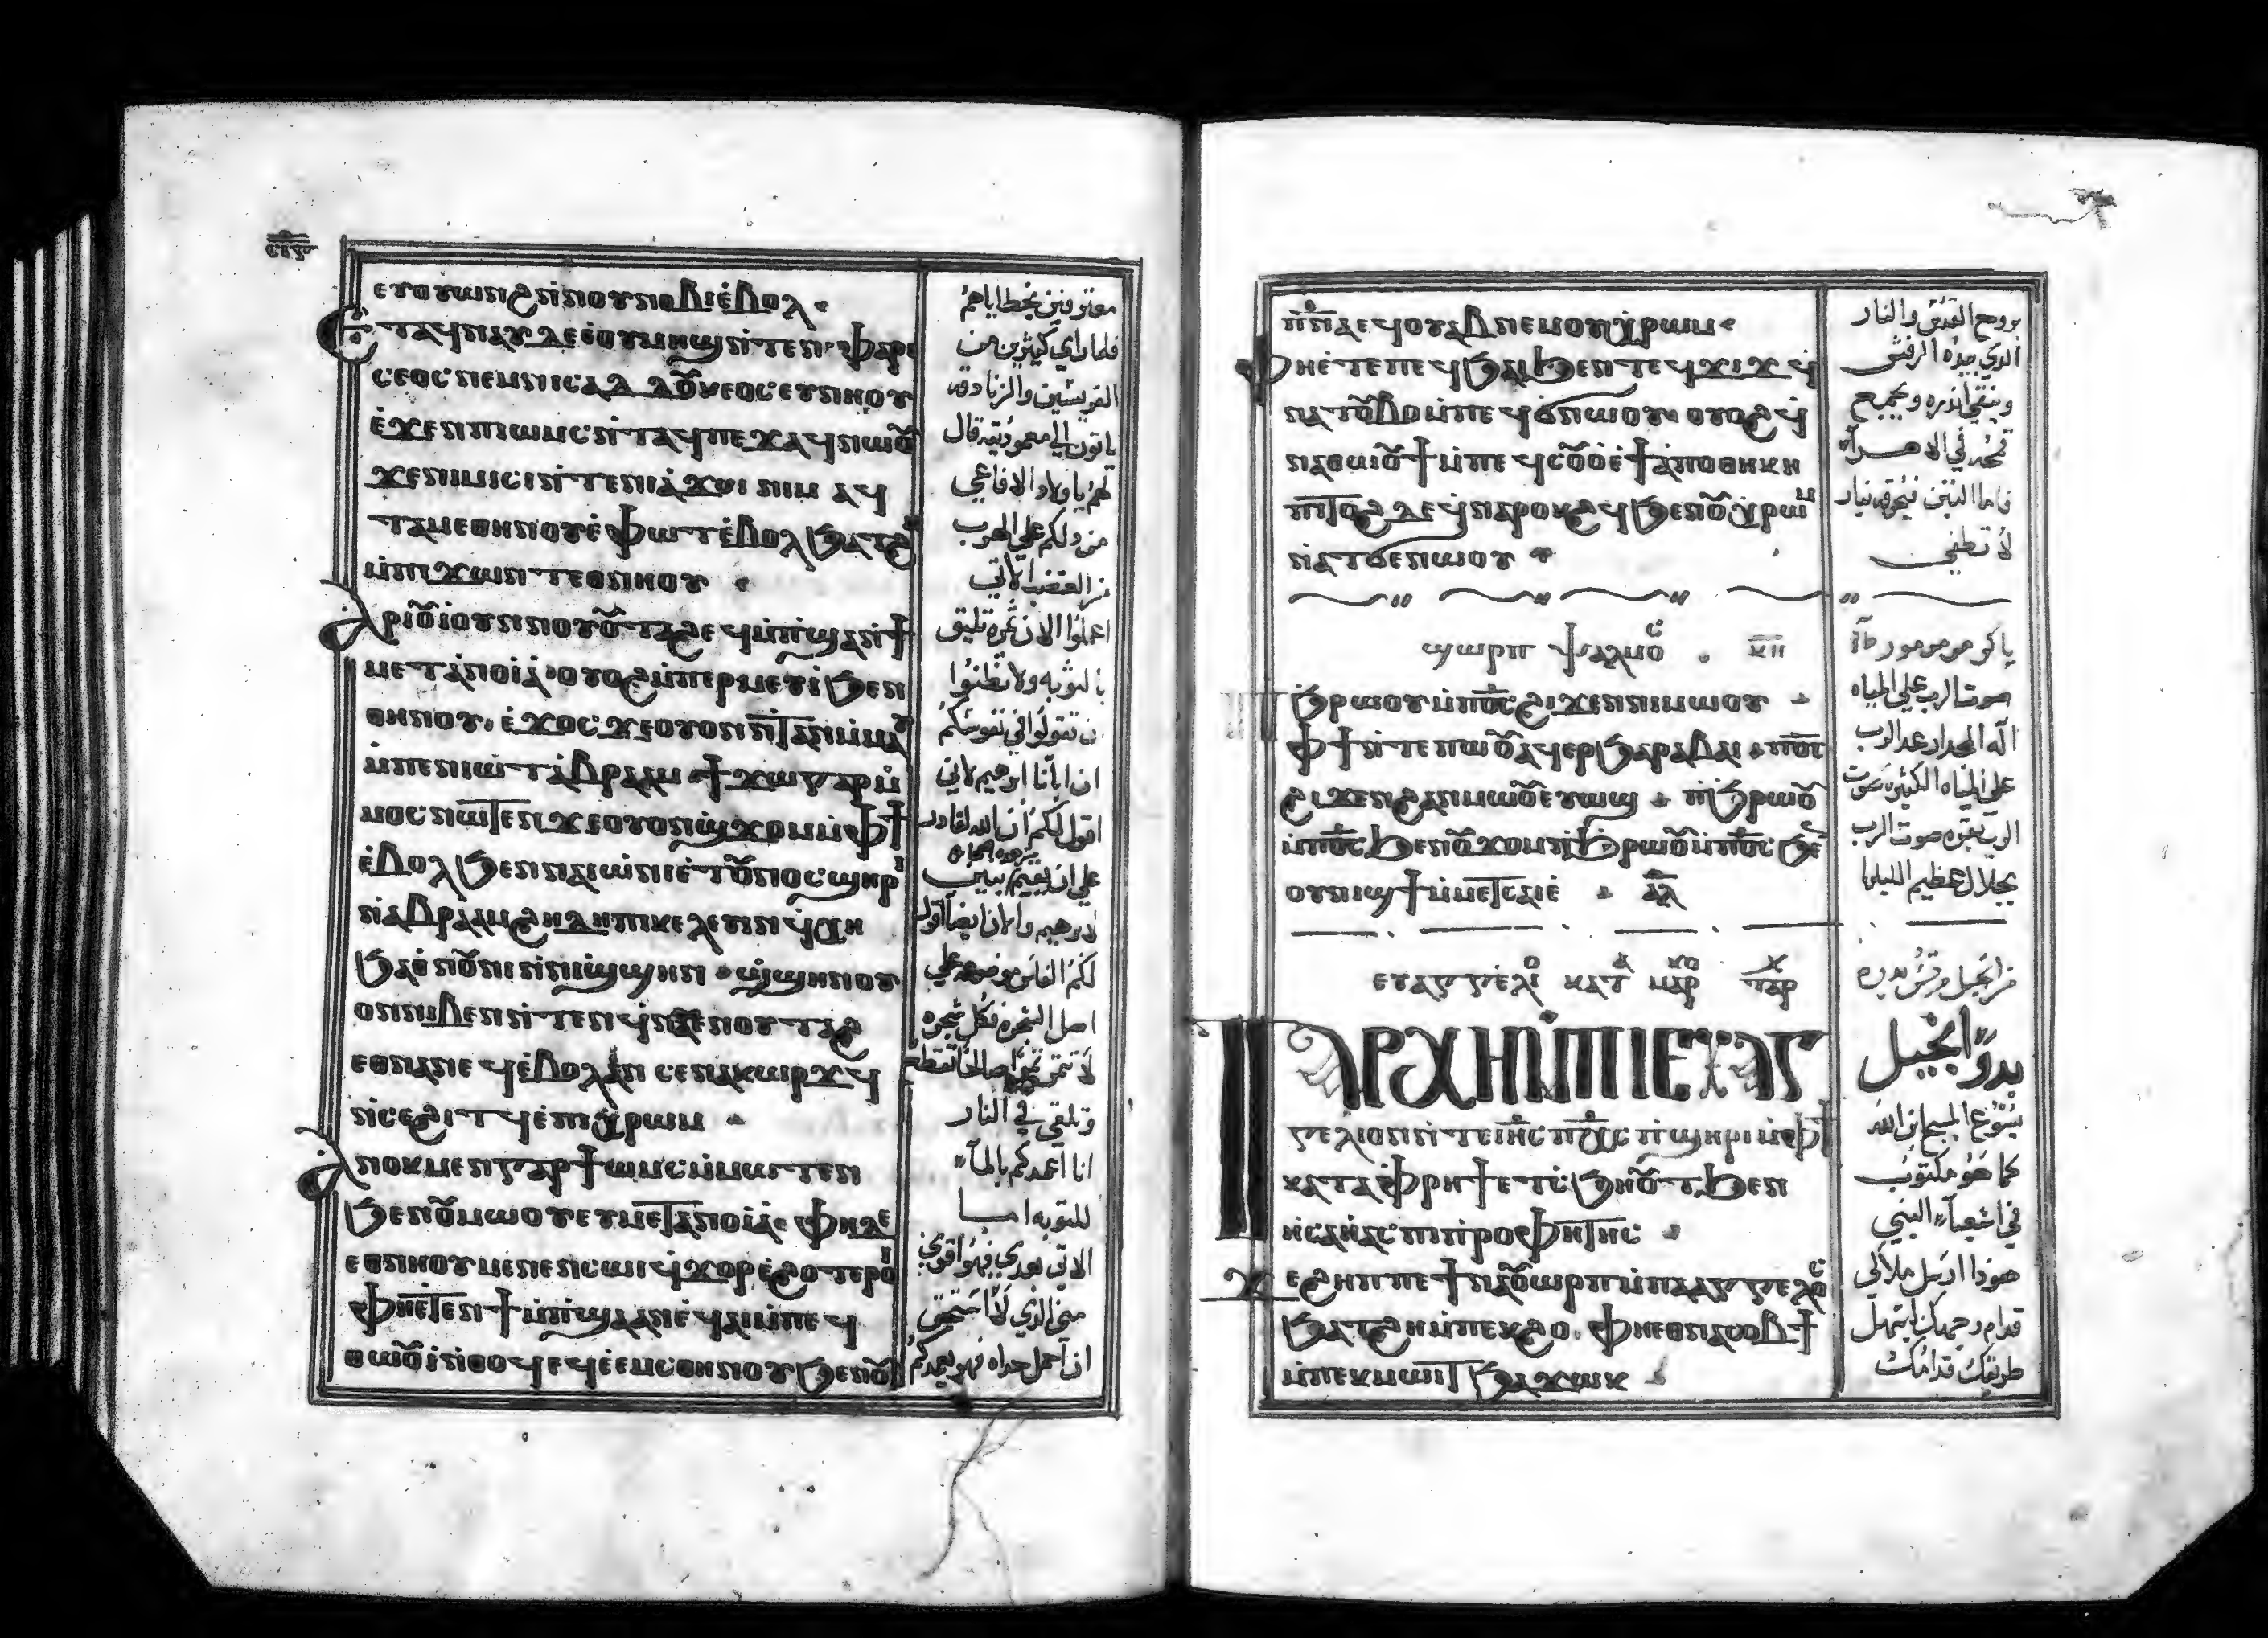 ⲉⲩⲟⲩⲱⲛϩ ⲛ̀ⲛⲟⲩⲛⲟⲃⲓ ⲉ̀ⲃⲟⲗ
ⲉⲧⲁϥⲛⲁⲩ ⲇⲉ ⲉ̀ⲟⲩⲙⲏϣ ⲛ̀ⲧⲉ ⲛⲓⲫⲁⲣⲓ
ⲥⲉⲟⲥ ⲛⲉⲙ ⲛⲓⲥⲁⲇⲇⲟⲩⲕⲉⲟⲥ ⲉⲩⲛⲏⲟⲩ
ⲉ̀ϫⲉⲛ ⲡⲓⲱⲙⲥ ⲛ̀ⲧⲁϥ ⲡⲉϫⲁϥ ⲛⲱⲟⲩ
ϫⲉ ⲛⲓⲙⲓⲥⲓ ⲛ̀ⲧⲉ ⲛⲓⲁ̀ϫⲱⲓ ⲛⲓⲙ ⲁϥ
ⲧⲁⲙⲉ ⲑⲏⲛⲟⲩ ⲉ̀ⲫⲱⲧ ⲉ̀ⲃⲟⲗ ϧⲁⲧϩⲏ
ⲙ̀ⲡⲓϫⲱⲛⲧ ⲉⲑⲛⲏⲟⲩ
ⲁⲣⲓⲟⲩⲓ̀ ⲟⲩⲛ ⲛⲟⲩⲟⲩⲧⲁϩ ⲉϥⲙ̀ⲡ̀ϣⲁ ⲛ̀ϯ
ⲙⲉⲧⲁ̀ⲛⲟⲓⲁ̀ ⲟⲩⲟϩ ⲙ̀ⲡⲉⲣⲙⲉⲩⲓ̀ ϧⲉⲛ
ⲑⲏⲛⲟⲩ ⲉ̀ϫⲟⲥ ϫⲉ ⲟⲩⲟⲛⲧⲁⲛ ⲙ̀ⲙⲁⲩ
ⲙ̀ⲡⲉⲛⲓⲱⲧ ⲁ̀ⲃⲣⲁⲁⲙ ϯϫⲱ ⲅⲁⲣ ⲙ̀
ⲙⲟⲥ ⲛⲱⲧⲉⲛ ϫⲉ ⲟⲩⲟⲛϣϫⲟⲙ ⲙ̀ⲫϯ
ⲉ̀ⲃⲟⲗϧⲉⲛ ⲛⲁⲓⲱ̀ⲛⲓ ⲉ̀ⲧⲟⲩⲛⲟⲥ ϣⲏⲣⲓ
ⲛ̀ⲁⲃⲣⲁⲁⲙ ϩⲏⲇⲏ ⲡⲓⲕⲉⲗⲉⲃⲓⲛ ϥ̀ⲭⲏ
ϧⲁⲑⲛⲟⲩⲛⲓ ⲛ̀ⲛⲓϣ̀ϣⲏⲛ ϣ̀ϣⲏⲛ ⲟⲩ
ⲟⲛ ⲛⲓⲃⲉⲛ ⲛ̀ⲧⲉⲛϥ̀ⲛⲁⲉⲛ ⲟⲩⲧⲁϩ
ⲉⲑⲛⲁⲛⲉϥ ⲉ̀ⲃⲟⲗ ⲁⲛ ⲥⲉⲛⲁⲕⲱⲣϫϥ
ⲛ̀ⲥⲉϩⲓⲧϥ ⲉ̀ⲡⲓⲭ̀ⲣⲱⲙ
ⲁⲛⲟⲕ ⲙⲉⲛ ⲅⲁⲣ ϯⲱⲙⲥ ⲙ̀ⲙⲱⲧⲉⲛ
ϧⲉⲛ ⲟⲩⲙⲱⲟⲩ ⲉⲩⲙⲉⲧⲁⲛⲟⲓⲁ̀ ⲫⲏ ⲇⲉ
ⲉⲑⲛⲏⲟⲩ ⲙⲉⲛⲉⲛⲥⲱⲓ ϥ̀ϫⲟⲣ ⲉ̀ϩⲟⲧⲉⲣⲟⲓ
ⲫⲏⲉⲧⲉⲛϯⲙ̀ⲡ̀ϣⲁ ⲁⲛ ⲉ̀ϥⲁⲓ ⲙ̀ⲡⲉϥ
ⲑⲱⲟⲩⲓ̀ ⲛ̀ⲑⲟϥ ⲉϥⲉ̀ⲉⲙⲥ ⲑⲏⲛⲟⲩ ϧⲉⲛ ⲟⲩ
معترفين بخطاياهم
فلما راي كثيرين من
الفريسيين والزنادقه
ياتون الي معموديته قال
لهم يا اولاد الافاعي
من دلكم علي الهرب
من الغضب الاتي
اعملوا الان ثمرة تليق
بالتوبه ولا تظنوا
ان تقولوا في نفوسكم
ان ابانا ابرهيم لاني
اقول لكم ان الله لقادر
من هذه الحجاره
علي ان يقيم بنين
لابرهيم والان ايضا اقول
لكم الفاس موضوعه علي
اصل الشجره فكل شجره
لا تثمر ثمرا صالحا تقطع
وتلقي في النار
انا اعمدكم بالمآ
للتوبه اما
الاتي بعدي فهو اقوي
مني الذي لا استحق
ان احمل حداه فهو يعمدكم
ⲡ̅ⲛ̅ⲁ̅ ⲉϥⲟⲩⲁⲃ ⲛⲉⲙ ⲟⲩⲭ̀ⲣⲱⲙ
ⲫⲏⲉ̀ⲧⲉ ⲡⲉϥϧⲁⲓ ϧⲉⲛ ⲧⲉϥϫⲓϫ ϥ̀
ⲛⲁⲧⲟⲩⲃⲟ ⲙ̀ⲡⲉϥϭ̀ⲛⲱⲟⲩ ⲟⲩⲟϩ ϥ̀
ⲛⲁⲑⲱⲟⲩϯ ⲙ̀ⲡⲉϥⲥⲟⲩⲟ ⲉ̀ϯⲁ̀ⲡⲟⲑⲏⲕⲏ
ⲡⲓⲧⲟϩ ⲇⲉ ϥ̀ⲛⲁⲣⲟⲕϩϥ ϧⲉⲛ ⲟⲩⲭ̀ⲣⲱⲙ
ⲛ̀ⲁⲧϭⲉⲛⲱⲟⲩ
ϣⲱⲣⲡ ⲯⲁⲗⲙⲟⲥ ⲕ̅ⲏ̅
ϧ̀ⲣⲱⲟⲩ ⲙ̀ⲡ̅ⲟ̅ⲥ̅ ϩⲓϫⲉⲛ ⲛⲓⲙⲱⲟⲩ
ⲫϯ ⲛ̀ⲧⲉ ⲡⲱⲟⲩ ⲁϥⲉⲣϧⲁⲣⲁⲃⲁⲓ ⲡ̅ⲟ̅ⲥ̅
ϩⲓϫⲉⲛ ϩⲁⲛⲙⲱⲟⲩ ⲉⲩⲱϣ ⲡ̀ϧ̀ⲣⲱⲟⲩ
ⲙ̀ⲡ̅ⲟ̅ⲥ̅ ϧⲉⲛ ⲟⲩϫⲟⲙ ⲛ̀ϧ̀ⲣⲱⲟⲩ ⲙ̀ⲡ̅ⲟ̅ⲥ̅ ϧⲉ
ⲟⲩⲛⲓϣϯ ⲙ̀ⲙⲉⲧⲥⲁⲓⲉ̀ ⲁ̅ⲗ̅
ⲉⲩⲁⲅⲅⲉⲗⲓⲟ ⲕⲁⲧⲁ ⲙⲁⲣⲕⲟ ⲡⲁⲣⲭ
ⲁⲣⲭⲏ ⲙ̀ⲡⲓⲉⲩⲁⲅ
ⲅⲉⲗⲓⲟⲛ ⲛ̀ⲧⲉ ⲓⲏ̅ⲥ̅ ⲡⲭ̅ⲥ̅ ⲡ̀ϣⲏⲣⲓ ⲙ̀ⲫϯ
ⲕⲁⲧⲁ ⲫ̀ⲣⲏϯ ⲉⲧⲥ̀ϧⲏⲟⲩⲧ ϧⲉⲛ
ⲏ̀ⲥⲁⲏ̀ⲁⲥ ⲡⲓⲡ̀ⲣⲟⲫⲏⲧⲏⲥ
ϫⲉ ϩⲏⲡⲡⲉ ϯⲛⲁⲟⲩⲱⲣⲡ ⲙ̀ⲡⲁⲁⲅⲅⲉⲗⲟⲥ
ϧⲁⲧϩⲏ ⲙ̀ⲡⲉⲕϩⲟ ⲫⲏⲉⲑⲛⲁⲥⲟⲃϯ
ⲙ̀ⲡⲉⲕⲙⲱⲓⲧ ϧⲁϫⲱⲕ
بروح القدس والنار
الذي بيده الرفش
وينقي اندره ويجمع
قمحه في الاهرآ
فاما التبن فيحرقه بنار
لا تطفي
باكر مزمور
صوت الرب علي المياه
اله المجد ارعد الرب
علي المياه الكثيره صوت
الرب بقوه صوت الرب
بجلال عظيم الليلويا
من انجيل مرقس
بدو انجيل
يسوع المسيح ابن الله
كما هو مكتوب
في اشعيآ النبي
هوذا ارسل ملاكي
قدام وجهك ليسهل
طريقك قدامك